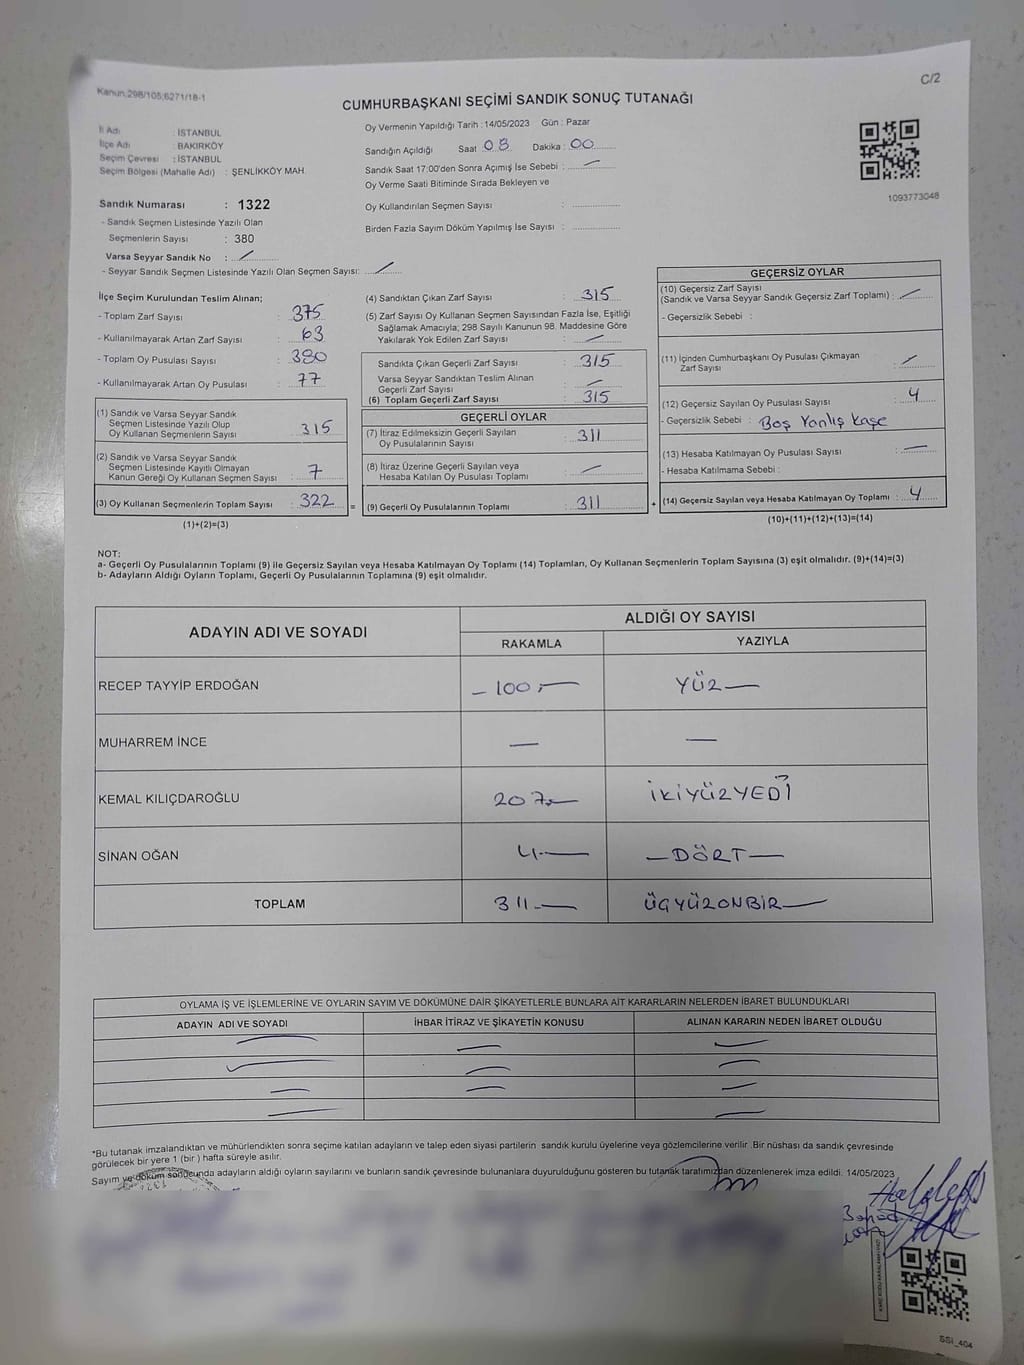 Kanun:298/105;6271/18-1
C/2
CUMHURBAŞKANI SEÇİMİ SANDIK SONUÇ TUTANAĞI
İl Adı : İSTANBUL
İlçe Adı : BAKIRKÖY
Seçim Çevresi : İSTANBUL
Seçim Bölgesi (Mahalle Adı) : ŞENLİKKÖY MAH.
Sandık Numarası : 1322
- Sandık Seçmen Listesinde Yazılı Olan
Seçmenlerin Sayısı : 380
Varsa Seyyar Sandık No :
- Seyyar Sandık Seçmen Listesinde Yazılı Olan Seçmen Sayısı:
Oy Vermenin Yapıldığı Tarih : 14/05/2023 Gün : Pazar
Sandığın Açıldığı Saat 08 Dakika : 00
Sandık Saat 17:00'den Sonra Açımış İse Sebebi :
Oy Verme Saati Bitiminde Sırada Bekleyen ve
Oy Kullandırılan Seçmen Sayısı :
Birden Fazla Sayım Döküm Yapılmış İse Sayısı :
1093773048
İlçe Seçim Kurulundan Teslim Alınan;
- Toplam Zarf Sayısı : 375
- Kullanılmayarak Artan Zarf Sayısı : 63
- Toplam Oy Pusulası Sayısı : 380
- Kullanılmayarak Artan Oy Pusulası : 77
(1) Sandık ve Varsa Seyyar Sandık
Seçmen Listesinde Yazılı Olup
Oy Kullanan Seçmenlerin Sayısı : 315
(2) Sandık ve Varsa Seyyar Sandık
Seçmen Listesinde Kayıtlı Olmayan
Kanun Gereği Oy Kullanan Seçmen Sayısı : 7
(3) Oy Kullanan Seçmenlerin Toplam Sayısı : 322
(1)+(2)=(3)
(4) Sandıktan Çıkan Zarf Sayısı : 315
(5) Zarf Sayısı Oy Kullanan Seçmen Sayısından Fazla İse, Eşitliği
Sağlamak Amacıyla; 298 Sayılı Kanunun 98. Maddesine Göre
Yakılarak Yok Edilen Zarf Sayısı :
Sandıkta Çıkan Geçerli Zarf Sayısı : 315
Varsa Seyyar Sandıktan Teslim Alınan
Geçerli Zarf Sayısı :
(6) Toplam Geçerli Zarf Sayısı : 315
GEÇERLİ OYLAR
(7) İtiraz Edilmeksizin Geçerli Sayılan
Oy Pusulalarının Sayısı : 311
(8) İtiraz Üzerine Geçerli Sayılan veya
Hesaba Katılan Oy Pusulası Toplamı :
= (9) Geçerli Oy Pusulalarının Toplamı : 311 +
GEÇERSİZ OYLAR
(10) Geçersiz Zarf Sayısı
(Sandık ve Varsa Seyyar Sandık Geçersiz Zarf Toplamı) :
- Geçersizlik Sebebi :
(11) İçinden Cumhurbaşkanı Oy Pusulası Çıkmayan
Zarf Sayısı :
(12) Geçersiz Sayılan Oy Pusulası Sayısı : 4
- Geçersizlik Sebebi : Boş Yanlış Kaşe
(13) Hesaba Katılmayan Oy Pusulası Sayısı :
- Hesaba Katılmama Sebebi :
(14) Geçersiz Sayılan veya Hesaba Katılmayan Oy Toplamı : 4
(10)+(11)+(12)+(13)=(14)
NOT:
a- Geçerli Oy Pusulalarının Toplamı (9) ile Geçersiz Sayılan veya Hesaba Katılmayan Oy Toplamı (14) Toplamları, Oy Kullanan Seçmenlerin Toplam Sayısına (3) eşit olmalıdır. (9)+(14)=(3)
b- Adayların Aldığı Oyların Toplamı, Geçerli Oy Pusulalarının Toplamına (9) eşit olmalıdır.
ADAYIN ADI VE SOYADI ALDIĞI OY SAYISI
RAKAMLA YAZIYLA
RECEP TAYYİP ERDOĞAN 100 YÜZ
MUHARREM İNCE
KEMAL KILIÇDAROĞLU 207 İKİYÜZYEDİ
SİNAN OĞAN 4 DÖRT
TOPLAM 311 ÜÇYÜZONBİR
OYLAMA İŞ VE İŞLEMLERİNE VE OYLARIN SAYIM VE DÖKÜMÜNE DAİR ŞİKAYETLERLE BUNLARA AİT KARARLARIN NELERDEN İBARET BULUNDUKLARI
ADAYIN ADI VE SOYADI İHBAR İTİRAZ VE ŞİKAYETİN KONUSU ALINAN KARARIN NEDEN İBARET OLDUĞU
*Bu tutanak imzalandıktan ve mühürlendikten sonra seçime katılan adayların ve talep eden siyasi partilerin sandık kurulu üyelerine veya gözlemcilerine verilir. Bir nüshası da sandık çevresinde
görülecek bir yere 1 (bir) hafta süreyle asılır.
Sayım ve döküm sonucunda adayların aldığı oyların sayılarını ve bunların sandık çevresinde bulunanlara duyurulduğunu gösteren bu tutanak tarafımızdan düzenlenerek imza edildi. 14/05/2023
SSİ_404